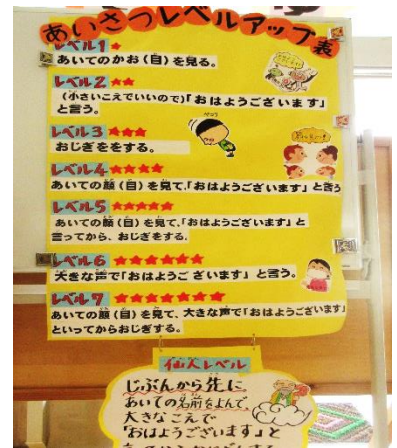 あいさつレベルアップ表
レベル1 ★
あいてのかお（目）を見る。
レベル2 ★★
（小さいこえでいいので）「おはようございます」
と言う。
レベル3 ★★★
おじぎををする。
レベル4 ★★★★
あいての顔（目）を見て、「おはようございます」と言う
レベル5 ★★★★★
あいての顔（目）を見て、「おはようございます」と
言ってから、おじぎをする。
レベル6 ★★★★★★
大きな声で「おはようございます」と言う。
レベル7 ★★★★★★★
あいての顔（目）を見て、大きな声で「おはようございます」
といってからおじぎする。
仙人レベル
じぶんから先に
あいての名前をよんで、
大きなこえで
「おはようございます」と